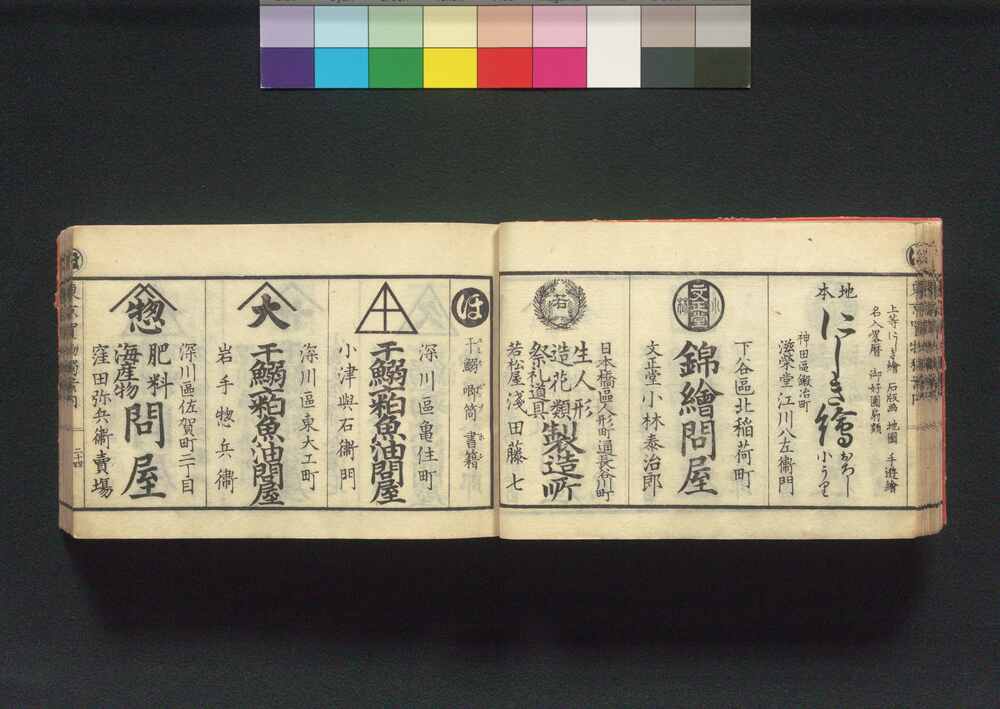 地本
上等にしき繪 石版画 地圖 手遊繪
名入畧暦 御好團扇類
にしき繪おろし小うり
神田區鍛冶町
滋榮堂江川八左衞門
文正堂
下谷區北稲荷町
錦繪問屋
文正堂小林泰治郎
若
日本橋區人形町通長谷川町
生人形
造花類
祭礼道具
製造所
若松屋淺田藤七
ほ
干鰯 喞筒 書籍
深川區亀住町
干鰯〆粕魚油問屋
小津與右衞門
大
深川區東大工町
干鰯〆粕魚油問屋
岩手惣兵衞
惣
深川區佐賀町二丁目
肥料
海産物
問屋
窪田弥兵衞賣場
二十四